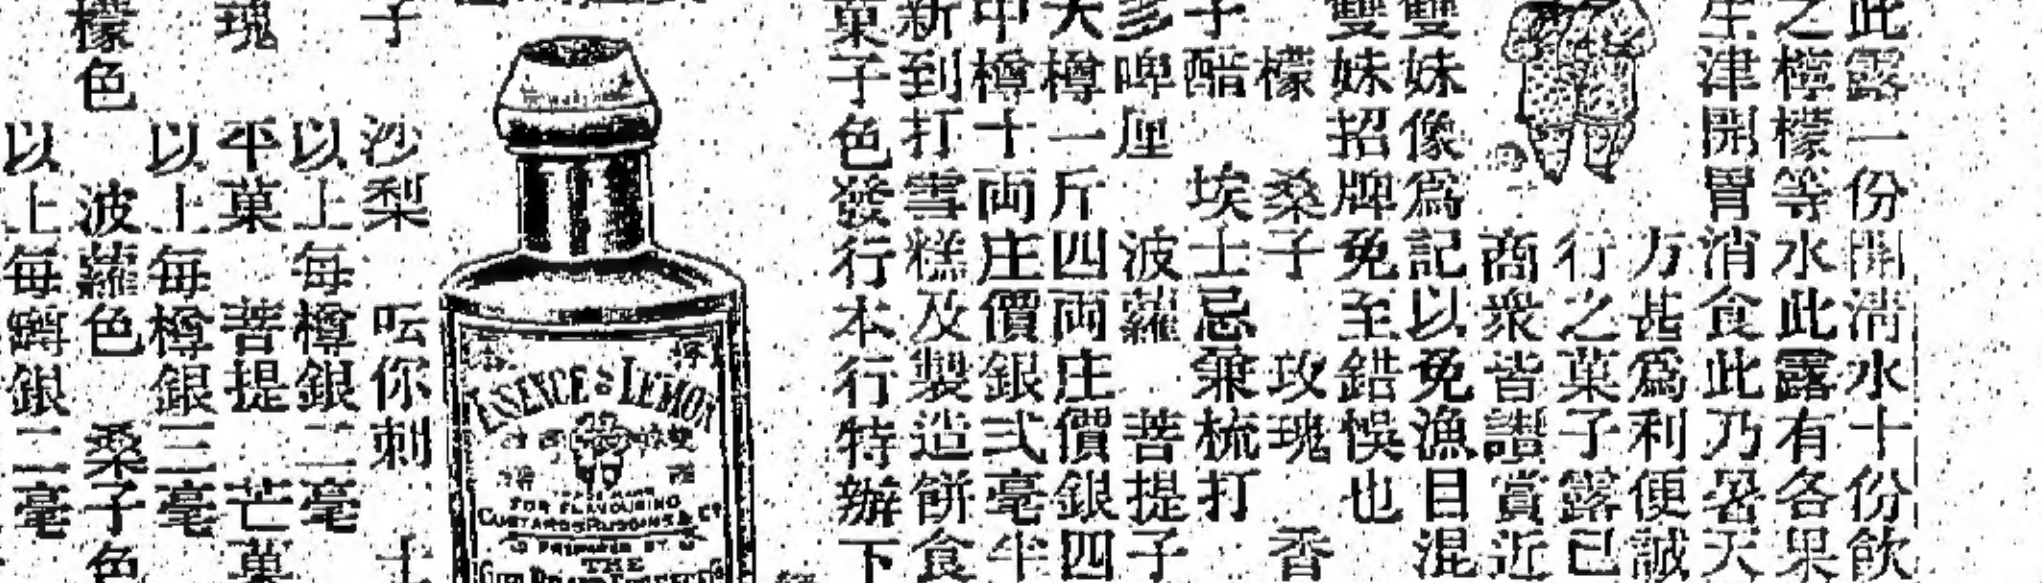 此露一份開清水十份飲
之檸檬等水此露有各果
生津開胃消食此乃暑天
方甚為利便誠
行之菓子露已
商衆皆讚賞近
雙妹像為記以免漁目混
雙妹招牌免至錯悞也
檬 桑子 玫瑰 香
子醋 埃士忌兼梳打
啤厘 波蘿 菩提子
大樽一斤四両庄價銀四
中樽十両庄價銀弍毫半
新到打雪糕及製造餅食
菓子色發行本行特辦下
ESSENCE OF LEMON
FOR FLAVOURING
CUSTARDS PUDDINGS &
THE
子 沙梨 呍你刺 士
以上每樽銀二毫
瑰 平菓 菩提 芒菓
以上每樽銀三毫
檬色 波蘿色 桑子色
以上每罇銀二毫